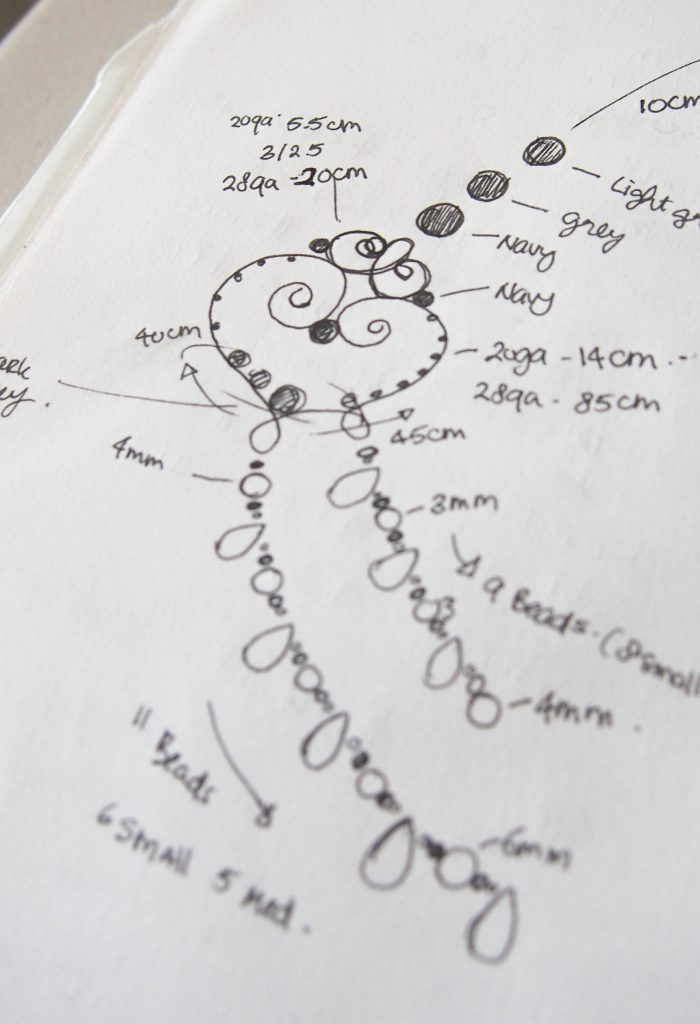 10cm
20ga 5.5cm
3/2.5
28ga - 20cm
Light
grey
Navy
Navy
40cm
20ga - 14cm
28ga - 85cm
45cm
4mm
3mm
9 Beads. (8 small
4mm.
11 Beads
6 small 5 Med.
6mm